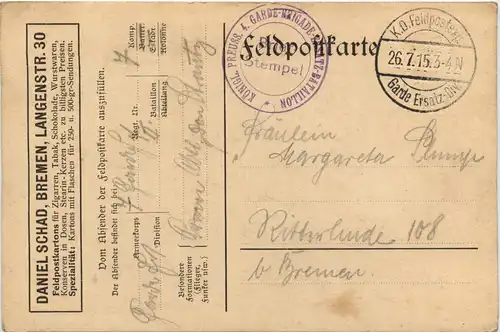 DANIEL SCHAD, BREMEN, LANGENSTR. 30
Feldpostkartons für Zigarren, Tabak, Schokolade, Wurstwaren,
Konserven in Dosen, Stearin-Kerzen etc. zu billigsten Preisen.
Spezialität: Kartons mit Flaschen für 250- u. 500-gr-Sendungen.
Vom Absender der Feldpostkarte auszufüllen.
Der Absender befindet sich bei:
Armeekorps
Division
Regt. Nr.
Bataillon
Abteilung
7
Komp.
Batter.
Eskadr.
Kolonne
Besondere
Formationen
(Flieger,
Funker usw.)
Feldpostkarte
KÖNIGL. PREUSS. 4. GARDE-BRIGADE-ERSATZ-BATAILLON
Stempel
K.D. Feldpostexp.
26.7.15. 3-4 N
Garde Ersatz-Div.
Fräulein
Margareta
Ritterhude 108
b Bremen.